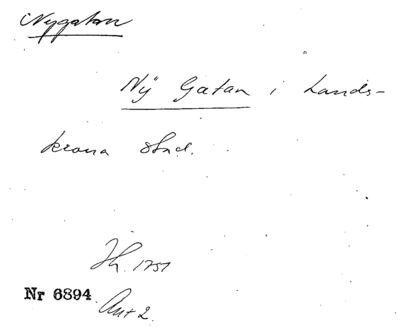 Nygatan
Nÿ Gatan i Lands-
krona Stad.
Jh. 1751
Nr 6894
Ant 2.